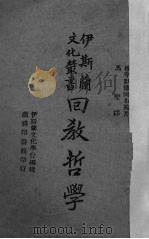 馬堅譯
伊斯蘭
文化叢書
回教哲學
伊斯蘭文化學會編輯
商務印書館發行